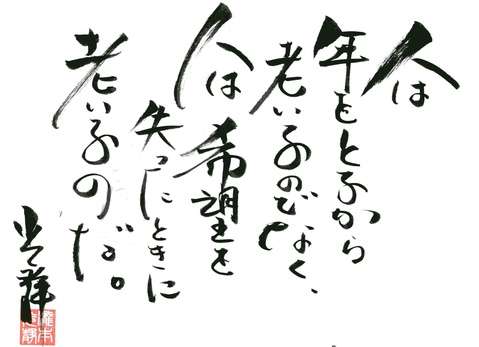 人は
年をとるから
老いるのでなく、
人は
希望を
失ったときに
老いるのだ。
光静